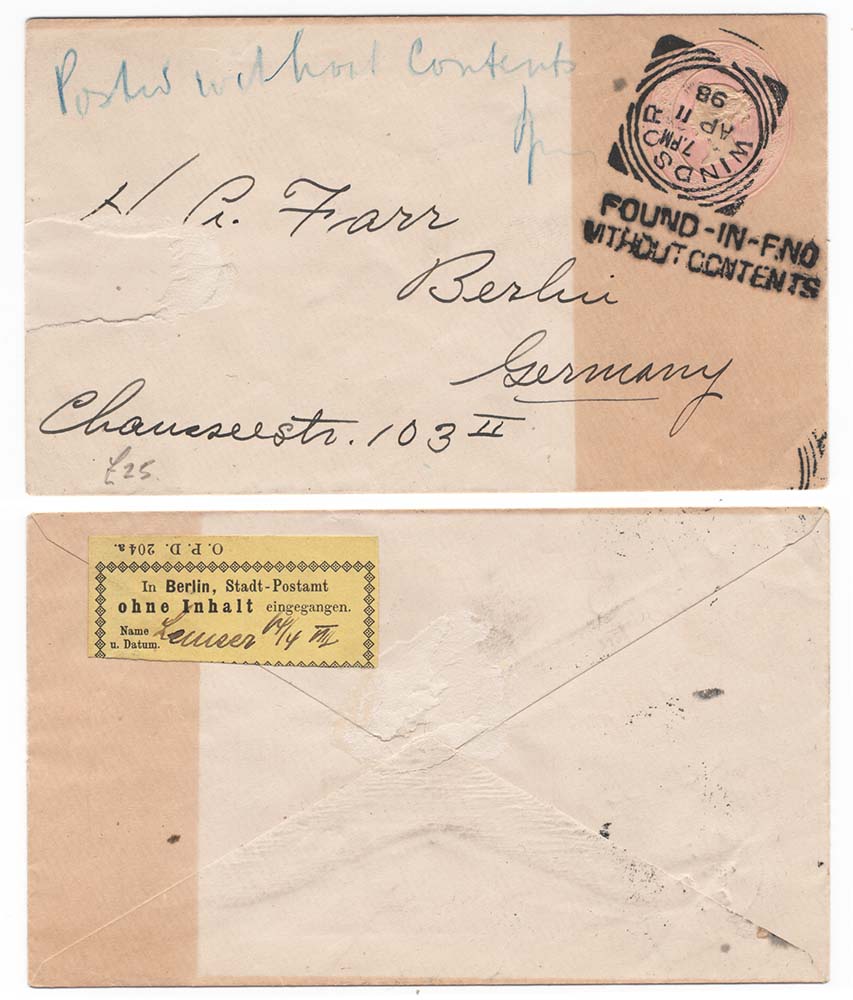 Posted without Contents
WINDSOR
7.PM
AP 11
98
FOUND-IN-F.NO
WITHOUT CONTENTS
Farr
Berlin
Germany
Chausseestr. 103 II
£25.
O. P. D. 204a.
In Berlin, Stadt-Postamt
ohne Inhalt eingegangen.
Name
u. Datum.